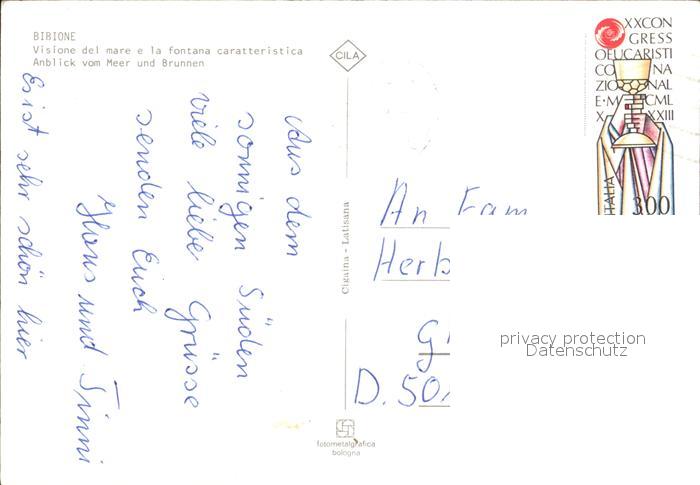 BIBIONE
Visione del mare e la fontana caratteristica
Anblick vom Meer und Brunnen
CILA
XXCON
GRESS
OEUCARISTI
CO NA
ZIONAL
E·M CML
X XXIII
ITALIA
300
Aus dem
sonnigen Süden
viele liebe Grüsse
senden Euch
Hans und Tinni
Es ist sehr schön hier
Cigaina - Latisana
An Fam
Herb
G
D. 50
privacy protection
Datenschutz
fotometalgrafica
bologna